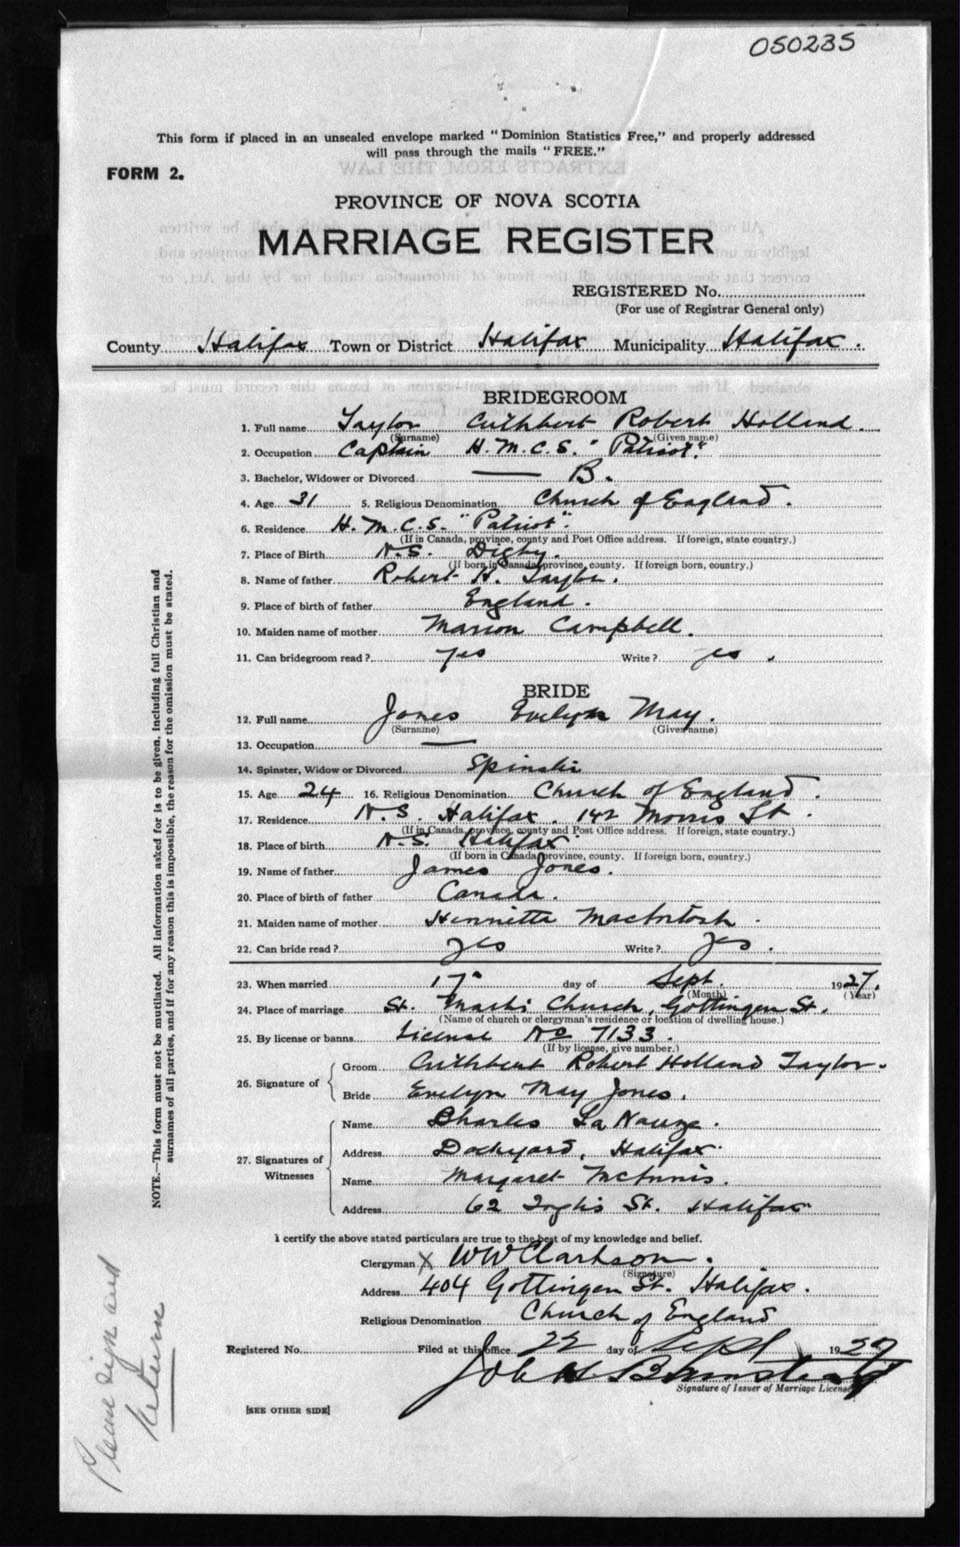 050235
This form if placed in an unsealed envelope marked "Dominion Statistics Free," and properly addressed
will pass through the mails "FREE."
FORM 2.
PROVINCE OF NOVA SCOTIA
MARRIAGE REGISTER
REGISTERED No.
(For use of Registrar General only)
County Halifax Town or District Halifax Municipality Halifax.
BRIDEGROOM
1. Full name Taylor Cuthbert Robert Holland.
(Surname) (Given name)
2. Occupation Captain H.M.C.S. "Patriot".
3. Bachelor, Widower or Divorced — B.
4. Age 31 5. Religious Denomination Church of England.
6. Residence H.M.C.S. "Patriot".
(If in Canada, province, county and Post Office address. If foreign, state country.)
7. Place of Birth N.S. Digby.
(If born in Canada, province, county. If foreign born, country.)
8. Name of father Robert H. Taylor.
9. Place of birth of father England.
10. Maiden name of mother Marion Campbell.
11. Can bridegroom read? yes Write? yes.
BRIDE
12. Full name Jones Evelyn May.
(Surname) (Given name)
13. Occupation —
14. Spinster, Widow or Divorced Spinster
15. Age 24 16. Religious Denomination Church of England.
17. Residence N.S. Halifax. 142 Morris St.
(If in Canada, province, county and Post Office address. If foreign, state country.)
18. Place of birth N.S. Halifax
(If born in Canada, province, county. If foreign born, country.)
19. Name of father James Jones.
20. Place of birth of father Canada.
21. Maiden name of mother Henrietta MacIntosh.
22. Can bride read? yes Write? yes.
23. When married 17" day of Sept. 1927.
(Month) (Year)
24. Place of marriage St. Mark's Church, Gottingen St.
(Name of church or clergyman's residence or location of dwelling house.)
25. By license or banns License No 7133.
(If by license, give number.)
26. Signature of
Groom Cuthbert Robert Holland Taylor.
Bride Evelyn May Jones.
27. Signatures of Witnesses
Name Charles La Nauze.
Address Dockyard, Halifax
Name Margaret McInnis.
Address 62 Inglis St. Halifax
I certify the above stated particulars are true to the best of my knowledge and belief.
Clergyman X WW Clarkson.
(Signature)
Address 404 Gottingen St. Halifax.
Religious Denomination Church of England
Registered No. Filed at this office 22 day of Sept 1927
Signature of Issuer of Marriage License
[SEE OTHER SIDE]
NOTE.—This form must not be mutilated. All information asked for is to be given, including full Christian and
surnames of all parties, and if for any reason this is impossible, the reason for the omission must be stated.
Please sign and
return